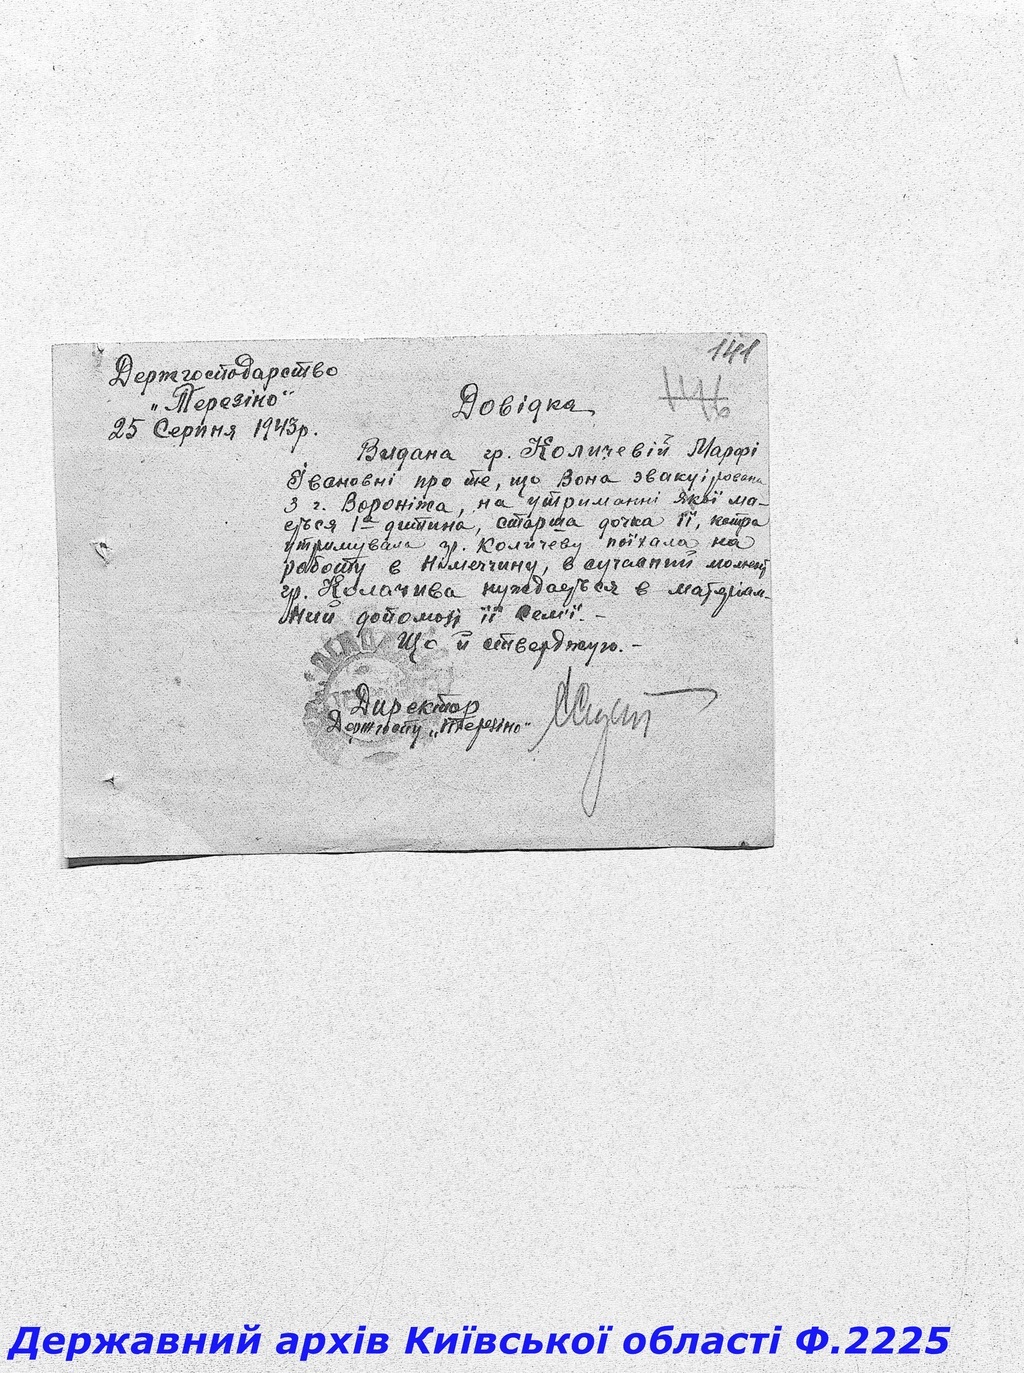 141
146
Держгосподарство
„Терезіно"
25 Серпня 1943 р.
Довідка
Видана гр. Количевій Марфі
Івановні про те, що вона эвакуірована
з г. Вороніжа, на утриманні якої ма-
еться 1на дитина, старша дочка її, котра
утримувала гр. Количеву поїхала на
работу в Німеччину, в сучасний момент
гр. Количива нуждается в матеріал-
ний допомозі її семї. -
Що й стверджую. -
Директор
Держгоспу „Терезіно"
Державний архів Київської області Ф.2225